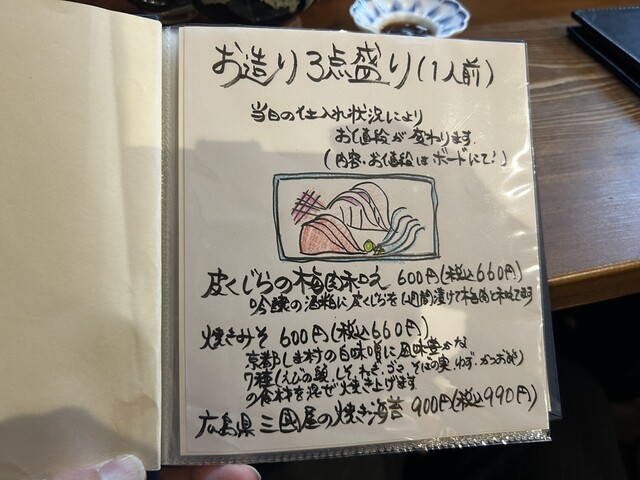 お造り3点盛り(1人前)
当日の仕入れ状況により
お値段が変わります
(内容・お値段はボードにて!)
皮くじらの梅肉和え 600円(税込660円)
吟醸の酒粕に皮くじらを1週間漬けて梅肉と和えてます
焼きみそ 600円(税込660円)
京都しま村の白味噌に風味豊かな
7種(えびの殻、しそ、ねぎ、ごま、そばの実、ゆず、かつお節)
の食材を混ぜ焼き上げます
広島県三國屋の焼き海苔 900円(税込990円)